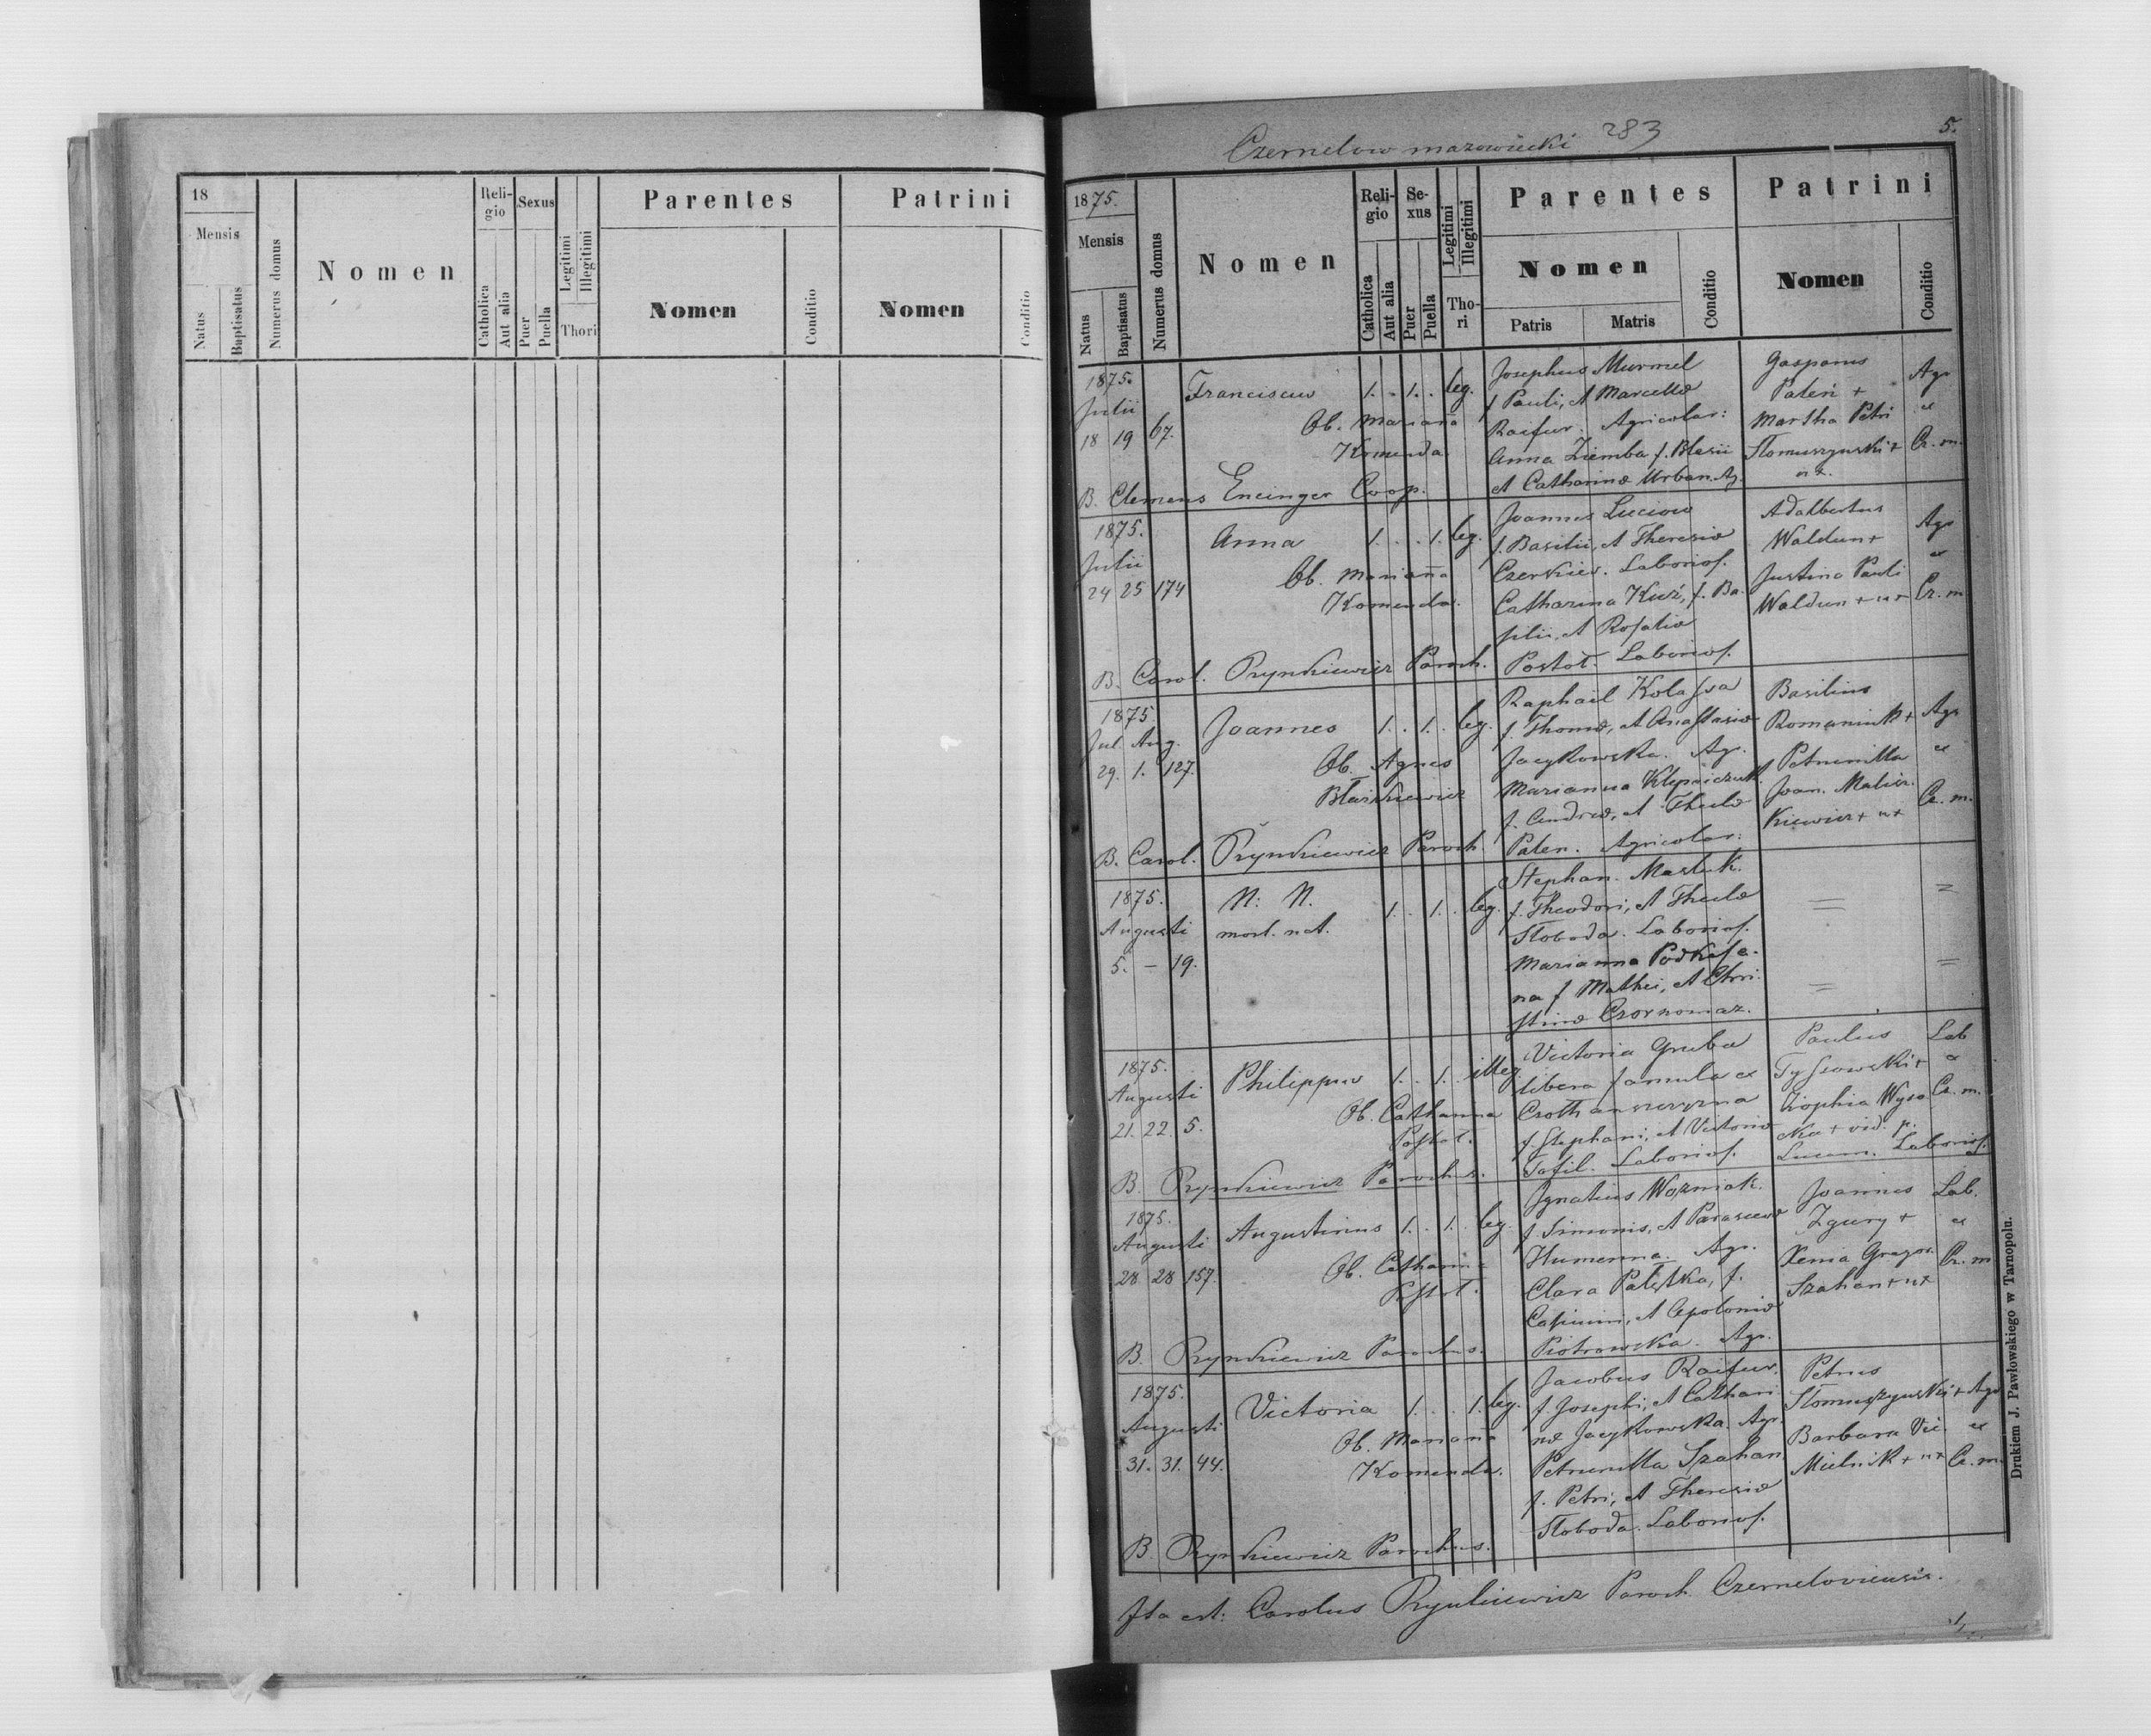 18
Mensis
Natus
Baptisatus
Numerus domus
Nomen
Religio
Catholica
Aut alia
Sexus
Puer
Puella
Legitimi
Illegitimi
Thori
Parentes
Nomen
Conditio
Patrini
Nomen
Conditio
Czernelow mazowiecki 283
5.
1875.
Mensis
Natus
Baptisatus
Numerus domus
Nomen
Religio
Catholica
Aut alia
Sexus
Puer
Puella
Legitimi
Illegitimi
Thori
Parentes
Nomen
Patris
Matris
Conditio
Patrini
Nomen
Conditio
1875.
Julii
18 19 67.
Franciscus 1. . 1. . leg.
Ob. Marianna
Komenda
B. Clemens Encinger Coop.
Josephus Murmel
f Pauli, et Marcellæ
Raifur. Agricolar:
Anna Ziemba f. Blasii
et Catharinæ Urban. Ag.
Gasparus
Paleń +
Martha Petri
Slomuszynski +
ux.
Agr
et
Cz. m.
1875.
Julii
24 25 174
Anna 1. . . 1. leg.
Ob. Marianna
Komenda.
B. Carol. Prynkiewicz Paroch.
Joannes Luciow
f. Basilii, et Theresiæ
Czerkies. Laborios.
Catharina Kuś, f. Ba-
silii, et Rosaliæ
Postoł. Laborios.
Adalbertus
Waldun +
Justina Pauli
Waldun + ux
Agr
et
Cz. m
1875
Jul. Aug.
29. 1. 127.
Joannes 1. . 1. . leg.
Ob. Agnes
Błaszkiewicz
B. Carol. Prynkiewicz Paroch.
Raphael Kolassa
f. Thomæ, et Anastasiæ
Jacykowska. Ag.
Marianna Klepaiczuk
f. Andreæ, et Theclæ
Palen. Agricolar:
Basilius
Romaniuk +
Petrunilla
Joan. Malisz-
kiewicz + ux
Agr
et
Cz. m.
1875.
Augusti
5. - 19.
N: N.
mort. nat.
1. . 1. . leg.
Stephan. Masluk.
f. Theodori, et Theclæ
Sloboda. Laborios.
Marianna Podkasa-
na f Mathei, et Chri-
stinæ Czornomaz.
1875.
Augusti
21. 22. 5.
Philippus 1. . 1. . illeg.
Ob. Catharina
Postoł.
B. Prynkiewicz Parochus.
Victoria Gruba
libera famula ex
f. Stephani, et Victoriæ
Tofil. Laborios.
Paulus
Tyssowski +
Zophia Wyso-
cka + vid. p.
Lucam. Laborios.
Lab
et
Cz. m.
1875.
Augusti
28 28 157.
Augustinus 1. . 1. . leg.
Ob. Catharina
Postoł.
B. Prynkiewicz Parochus.
Ignatius Wozniak.
f. Simonis, et Parasceviæ
Humenna. Agr.
Clara Paletka, f.
Casimiri, et Apoloniæ
Piotrowska. Agr.
Joannes
Zgury +
Xenia Gregor.
Szahan + ux
Lab.
et
Cz. m
1875.
Augusti
31. 31. 44.
Victoria 1. . . 1. leg.
Ob. Marianna
Komenda.
B. Prynkiewicz Parochus.
Jacobus Raifur.
f. Josephi, et Cathari-
næ Jacykowska. Agr.
Petrunella Szahan
f. Petri, et Theresiæ
Sloboda. Laborios.
Petrus
Slomuszynski +
Barbara Vić.
Mielnik + ux
Agr
et
Cz. m.
Ita est: Carolus Prynkiewicz Paroch. Czerneloviensis.
Drukiem J. Pawłowskiego w Tarnopolu.